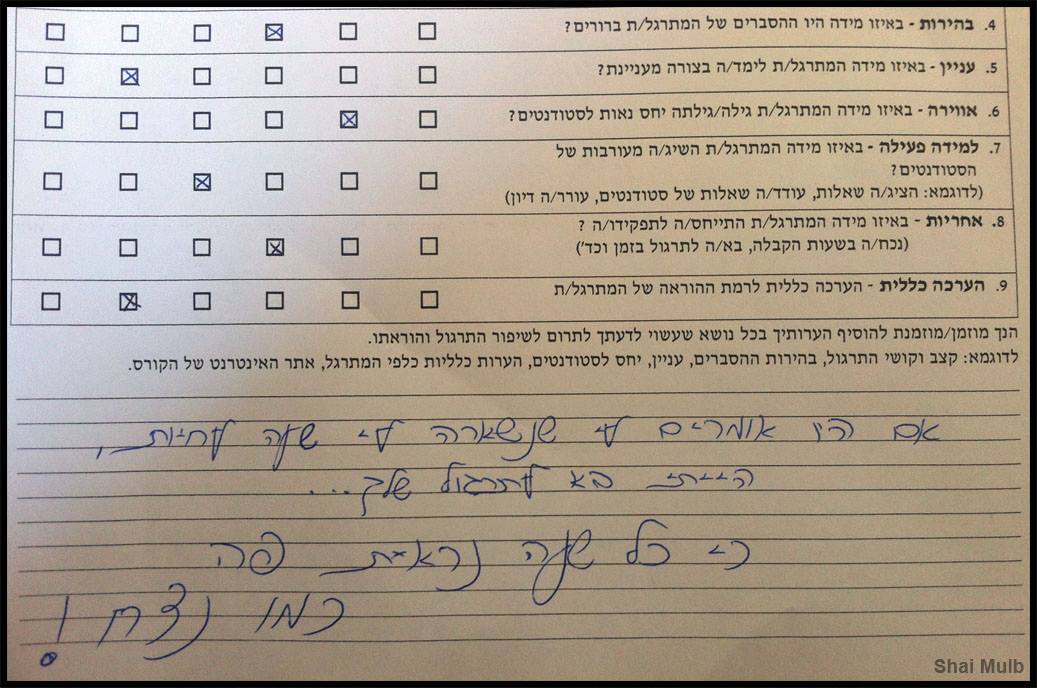 4. בהירות - באיזו מידה היו ההסברים של המתרגל/ת ברורים?
5. עניין - באיזו מידה המתרגל/ת לימד/ה בצורה מעניינת?
6. אווירה - באיזו מידה המתרגל/ת גילה/גילתה יחס נאות לסטודנטים?
7. למידה פעילה - באיזו מידה המתרגל/ת השיג/ה מעורבות של
הסטודנטים?
(לדוגמא: הציג/ה שאלות, עודד/ה שאלות של סטודנטים, עורר/ה דיון)
8. אחריות - באיזו מידה המתרגל/ת התייחס/ה לתפקידו/ה ?
(נכח/ה בשעות הקבלה, בא/ה לתרגול בזמן וכד')
9. הערכה כללית - הערכה כללית לרמת ההוראה של המתרגל/ת
הנך מוזמן/מוזמנת להוסיף הערותיך בכל נושא שעשוי לדעתך לתרום לשיפור התרגול והוראתו.
לדוגמא: קצב וקושי התרגול, בהירות ההסברים, עניין, יחס לסטודנטים, הערות כלליות כלפי המתרגל, אתר האינטרנט של הקורס.
אם היו אומרים לי שנשארה לי שעה לחיות,
הייתי בא לתרגול שלך....
כי כל שעה נראית פה
כמו נצח!
Shai Mulb